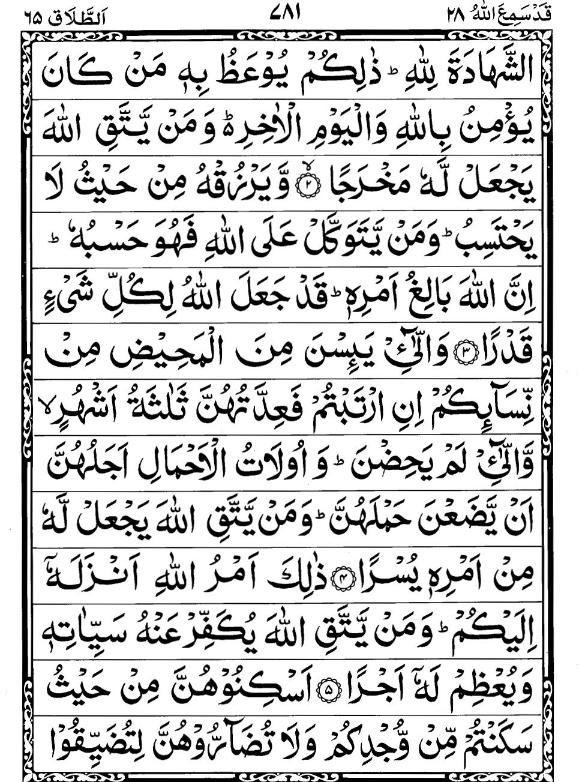 قَدْسَمِعَ اللّٰهُ ٢٨ ٧٨١ اَلطَّلَاق ٦٥
الشَّهَادَةَ لِلّٰهِ ؕ ذٰلِكُمْ يُوْعَظُ بِهٖ مَنْ كَانَ
يُؤْمِنُ بِاللّٰهِ وَالْيَوْمِ الْاٰخِرِ ؕ۬ وَمَنْ يَّتَّقِ اللّٰهَ
يَجْعَلْ لَّهٗ مَخْرَجًا ۙ﴿٢﴾ وَّيَرْزُقْهُ مِنْ حَيْثُ لَا
يَحْتَسِبُ ؕ وَمَنْ يَّتَوَكَّلْ عَلَى اللّٰهِ فَهُوَ حَسْبُهٗ ؕ
اِنَّ اللّٰهَ بَالِغُ اَمْرِهٖ ؕ قَدْ جَعَلَ اللّٰهُ لِكُلِّ شَىْءٍ
قَدْرًا ﴿٣﴾ وَالّٰٓـئِْ يَئِسْنَ مِنَ الْمَحِيْضِ مِنْ
نِّسَآئِكُمْ اِنِ ارْتَبْتُمْ فَعِدَّتُهُنَّ ثَلٰثَةُ اَشْهُرٍ ۙ
وَّالّٰٓـئِْ لَمْ يَحِضْنَ ؕ وَاُولَاتُ الْاَحْمَالِ اَجَلُهُنَّ
اَنْ يَّضَعْنَ حَمْلَهُنَّ ؕ وَمَنْ يَّتَّقِ اللّٰهَ يَجْعَلْ لَّهٗ
مِنْ اَمْرِهٖ يُسْرًا ﴿٤﴾ ذٰلِكَ اَمْرُ اللّٰهِ اَنْزَلَهٗۤ
اِلَيْكُمْ ؕ وَمَنْ يَّتَّقِ اللّٰهَ يُكَفِّرْ عَنْهُ سَيِّاٰتِهٖ
وَيُعْظِمْ لَهٗۤ اَجْرًا ﴿٥﴾ اَسْكِنُوْهُنَّ مِنْ حَيْثُ
سَكَنْتُمْ مِّنْ وُّجْدِكُمْ وَلَا تُضَآرُّوْهُنَّ لِتُضَيِّقُوْا